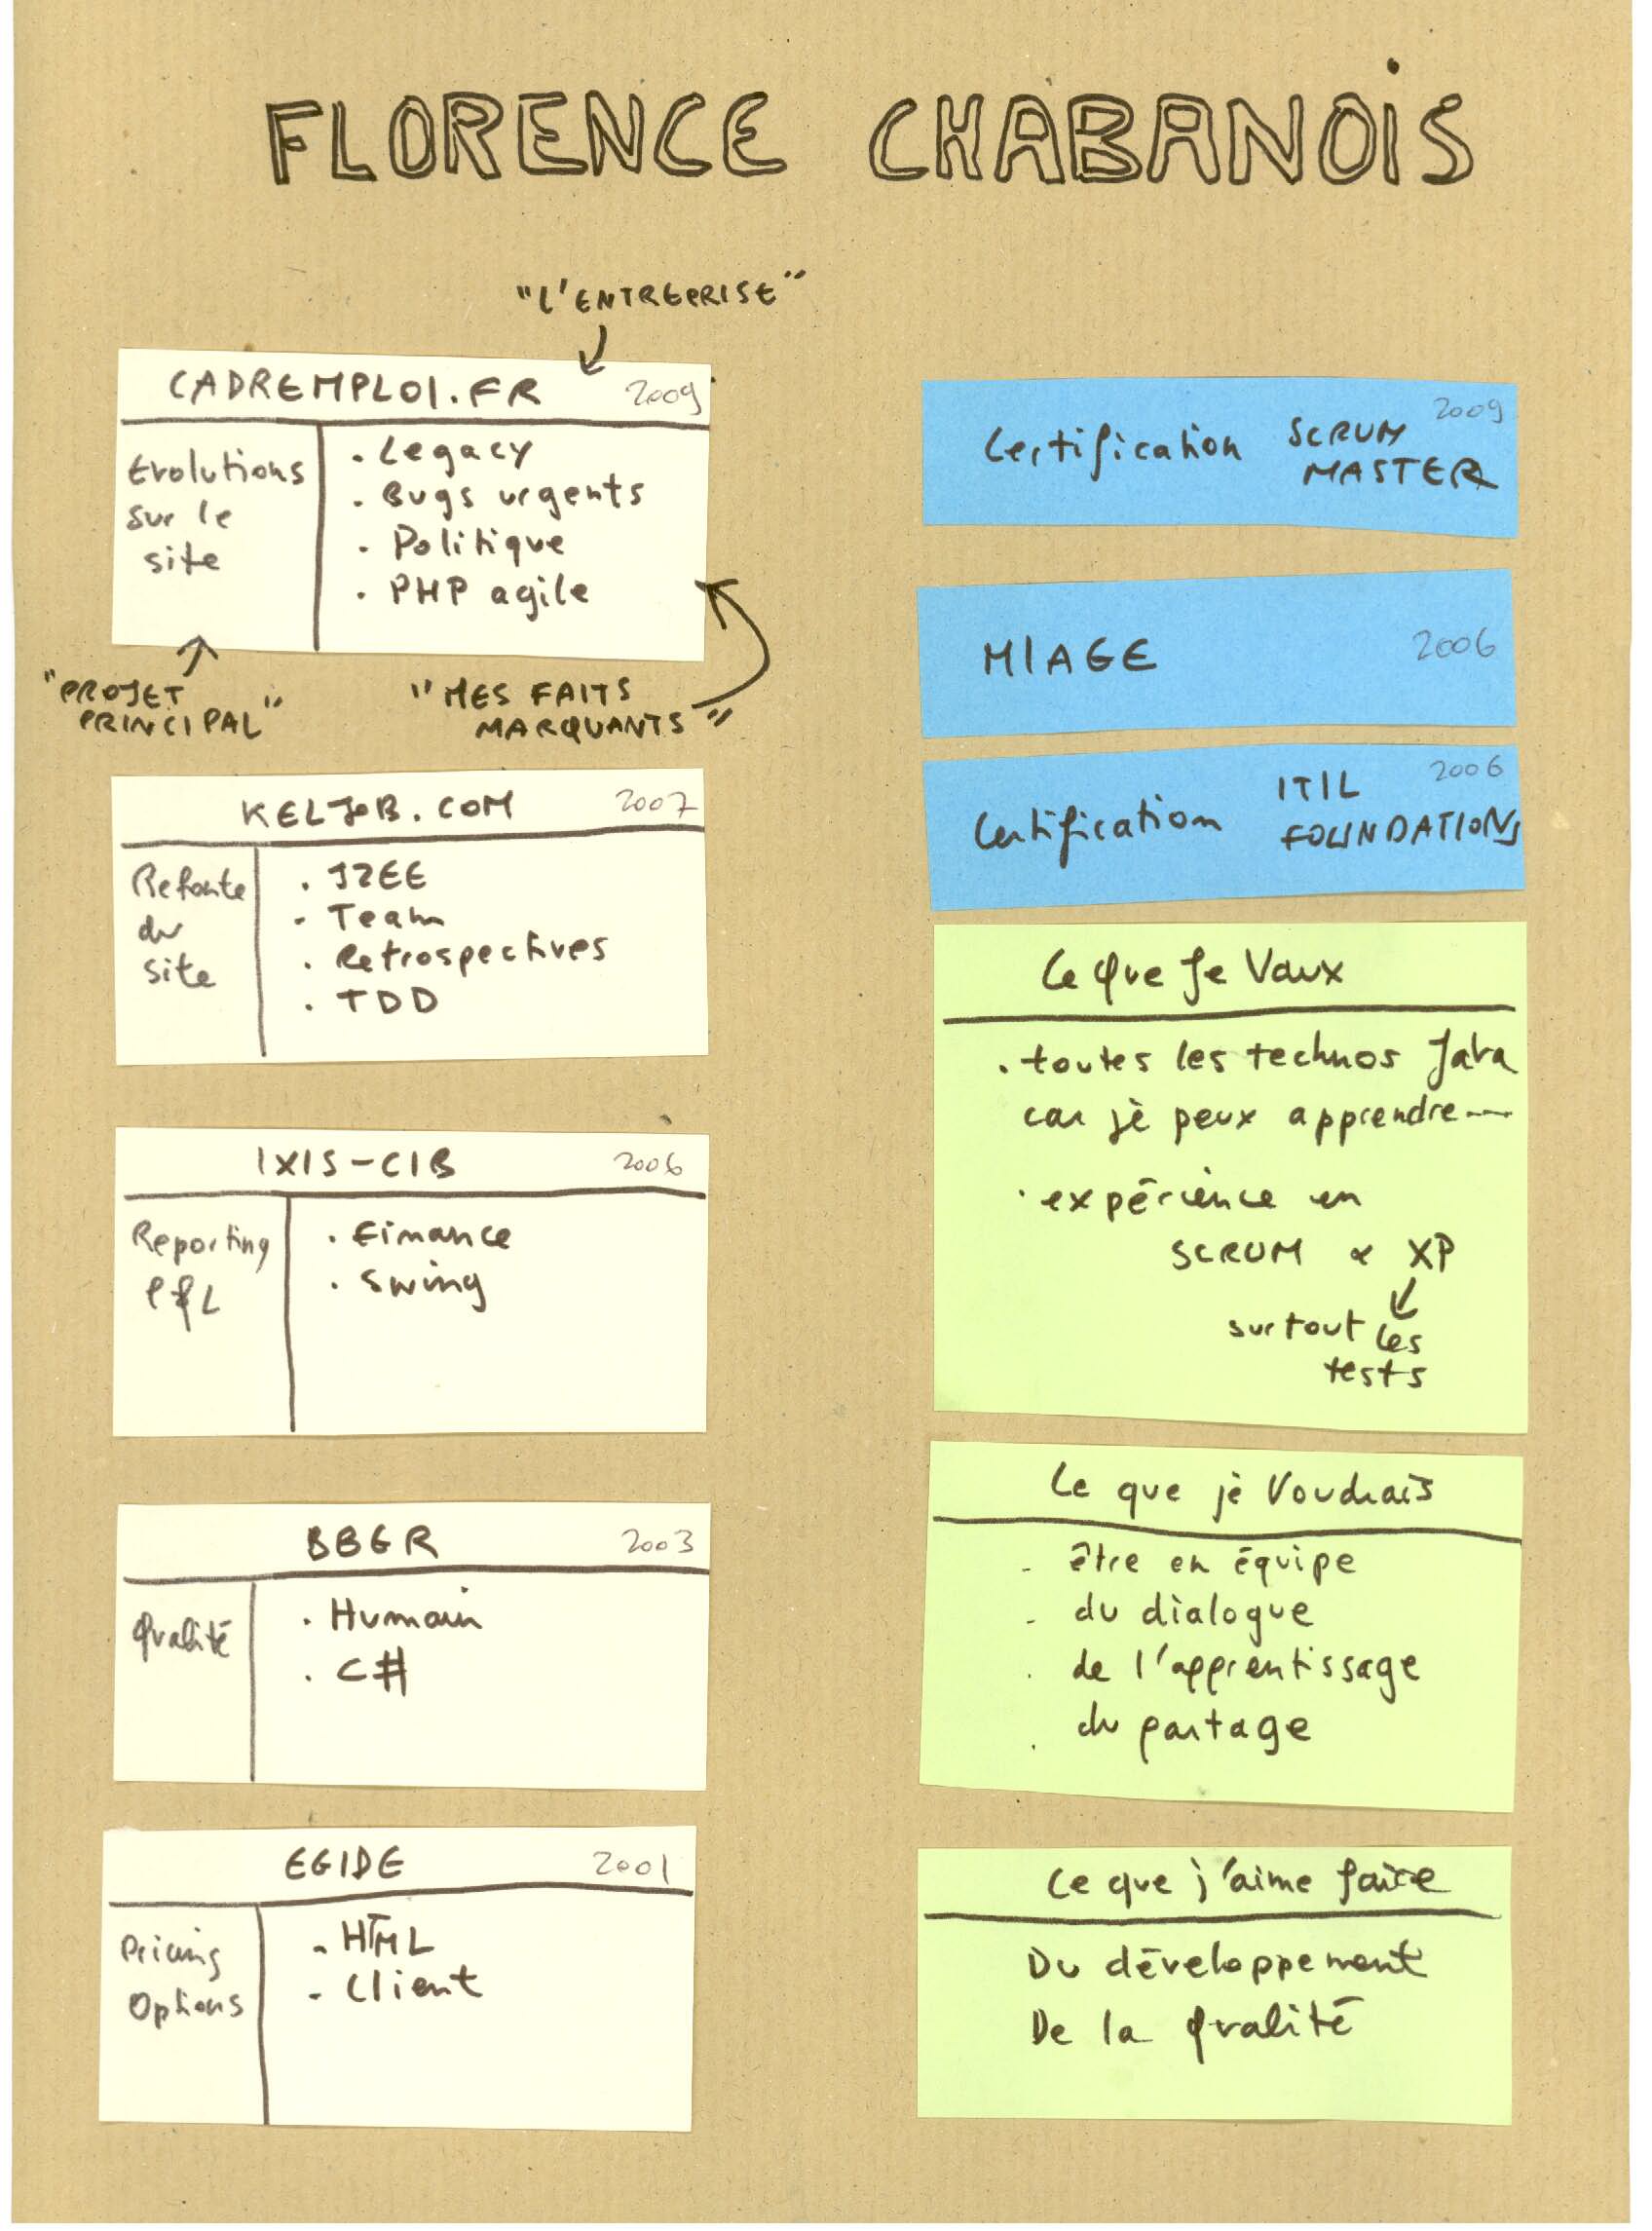 FLORENCE CHABANOIS
"L'ENTREPRISE"
CADREMPLOI.FR 2009
Evolutions
sur le
site
. Legacy
. Bugs urgents
. Politique
. PHP agile
"PROJET
PRINCIPAL"
"MES FAITS
MARQUANTS"
KELJOB.COM 2007
Refonte
du
site
. J2EE
. Team
. Retrospectives
. TDD
IXIS-CIB 2006
Reporting
P&L
. Finance
. Swing
BBGR 2003
Qualité
. Humain
. C#
EGIDE 2001
Pricing
Options
. HTML
. Client
2009
Certification SCRUM
MASTER
MIAGE 2006
2006
Certification ITIL
FOUNDATIONS
Ce Que Je Vaux
. toutes les technos Java
car je peux apprendre...
. expérience en
SCRUM & XP
surtout les
tests
Ce que je Voudrais
. être en équipe
. du dialogue
. de l'apprentissage
. du partage
Ce que j'aime faire
Du développement
De la Qualité